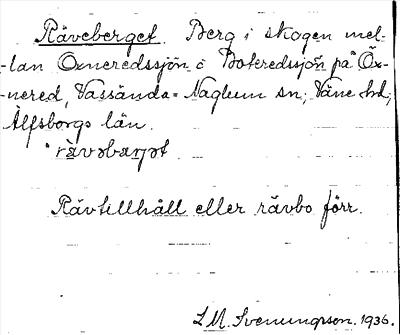 Räveberget. Berg i skogen mel-
-lan Öxneredssjön o Boteredssjön på Öx-
-nered, Vassända-Naglum sn; Väne hd,
Älfsborgs län.
rävəbarjət
Rävtillhåll eller rävbo förr.
L M. Svenungsson. 1936.